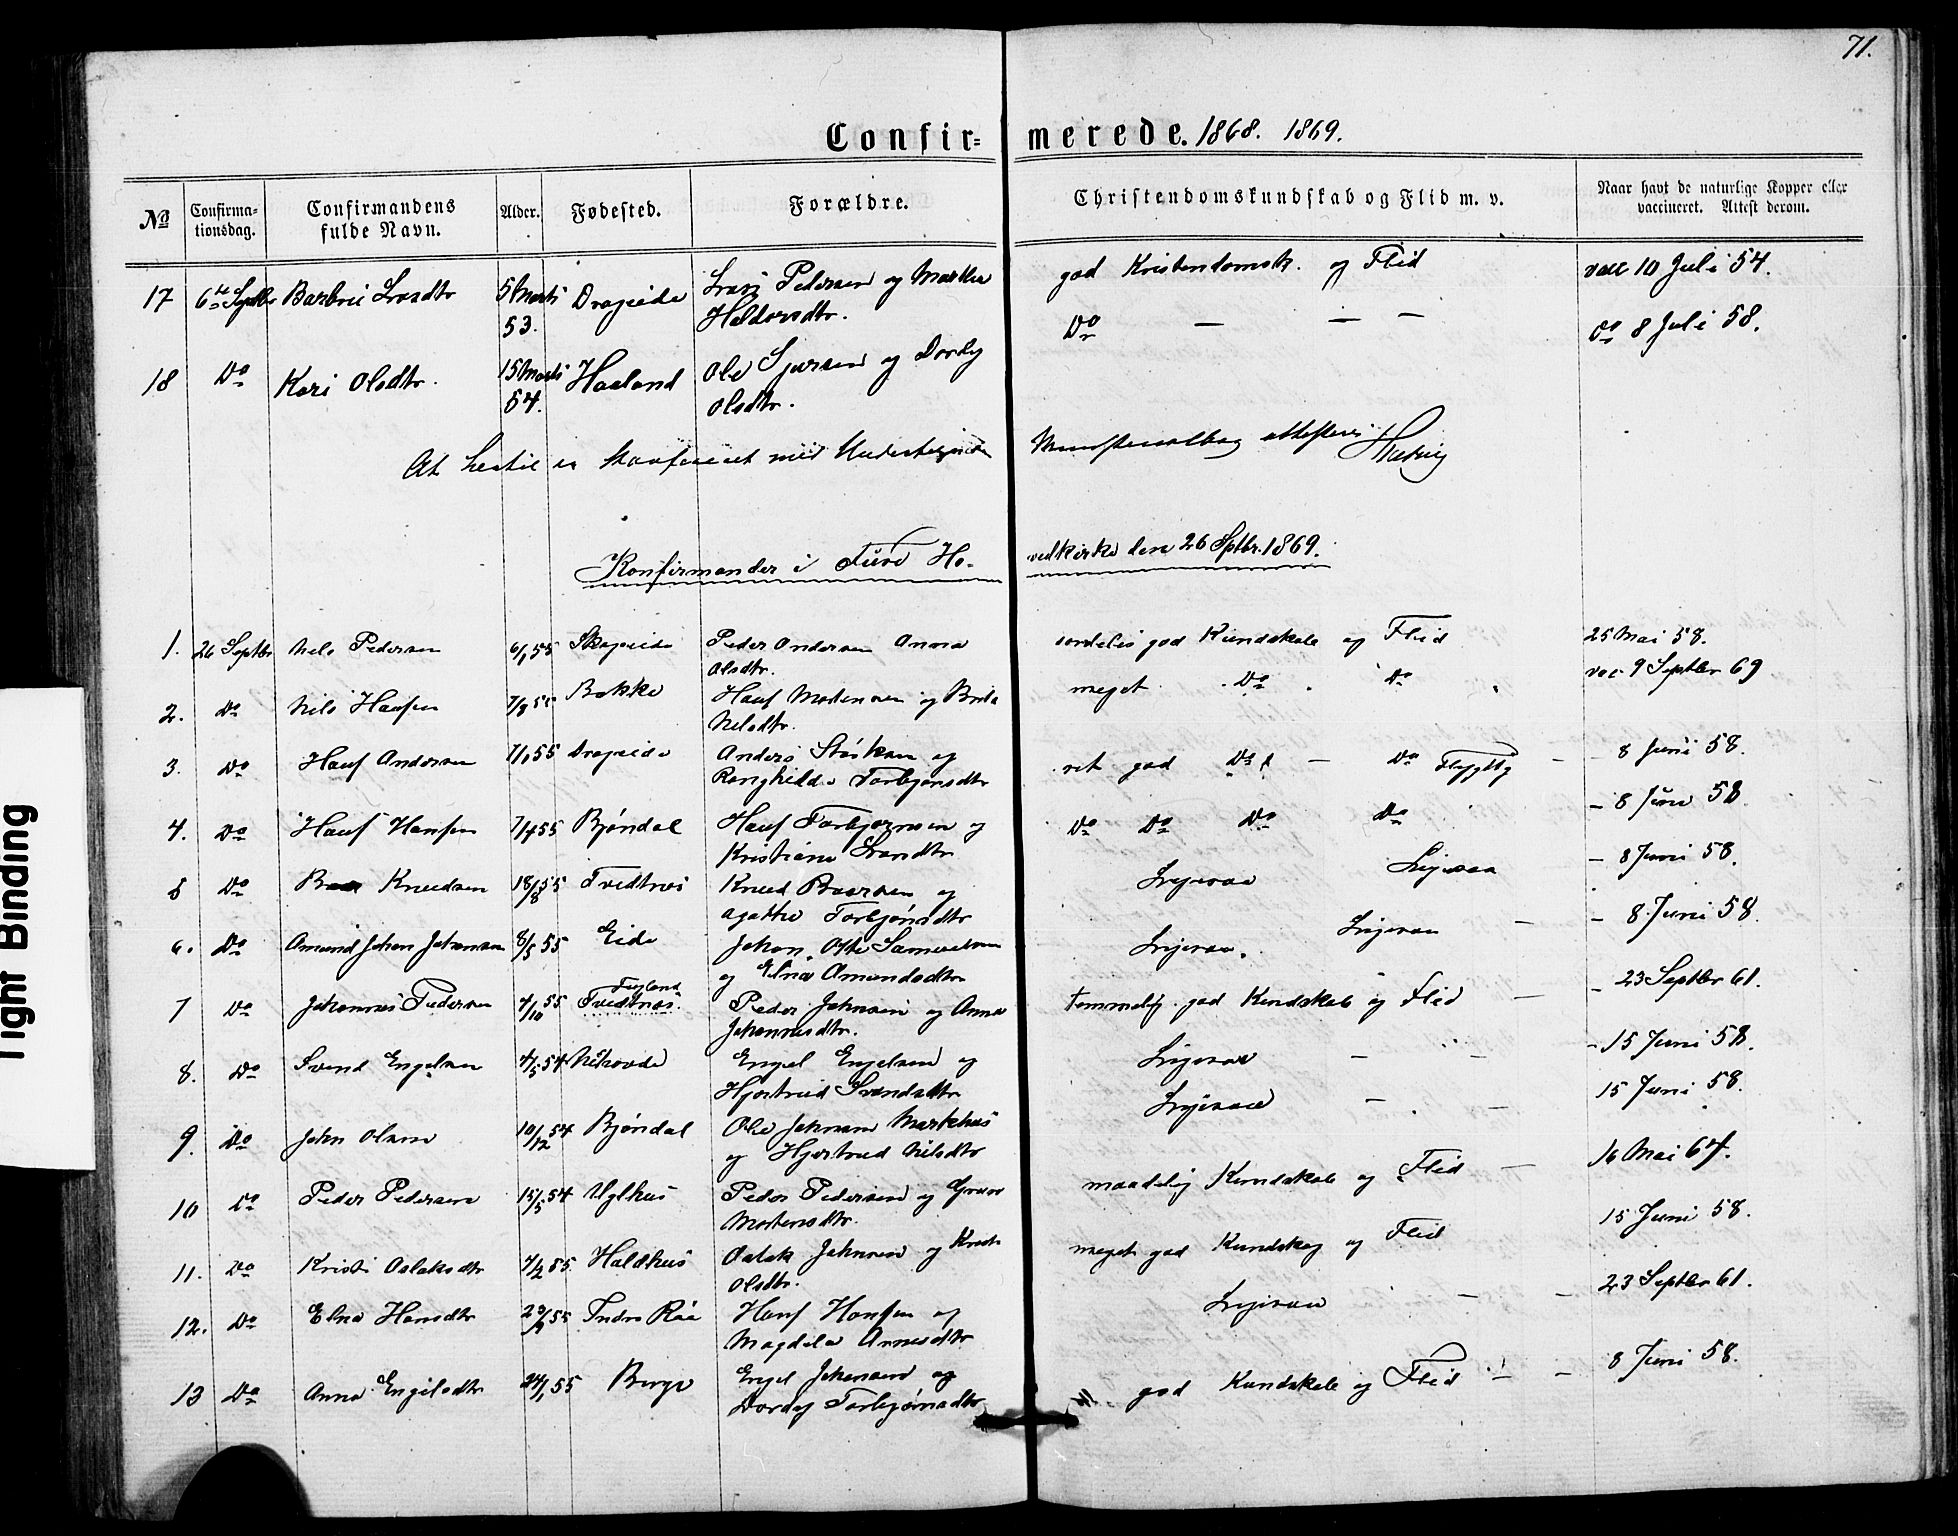 71.
Confir- merede. 1868. 1869.
No
Confirma-
tionsdag.
Confirmandens
fulde Navn.
Alder.
Fødested.
Forældre.
Christendomskundskab og Flid m. v.
Naar havt de naturlige Kopper eller
vaccineret. Attest derom.
17 6te Septbr 5 Marts Dragseide Pedersen og Martha god Kristendomsk. og Flid vacc 10 Juli 54.
53. Haldorsdtr.
18 Do Kari Olsdtr. 15 Marts Haaland Ole Sjursen og Dordy Do — — — do 8 Juli 58.
54. Olsdtr.
At hertil er med Undertegnede Ministerialbog attesteres
Konfirmander i Ho- vedkirke den 26 Sptbr. 1869.
1. 26 Septbr Nels Pedersen 6/1 55 Skogseide Peder Andersen Anna særdeles god Kundskab og Flid 25 Mai 58.
Olsdtr.
2. Do Nils Hansen 7/8 55 Bakke Hans Mortensen og Brita meget Do Do vac 9 Septbr 69
Nelsdtr.
3. Do Hans Andersen 7/1 55 Dragseide Anders og ret god Do — Do — 8 Juni 58.
Ranghilde Torbjønsdtr
4. Do Hans Hansen 7/4 55 Bjøndal Hans Torbjørnsen og Do Do Do Do — 8 Juni 58
Kristiane
5 Do Knudsen 18/8 55 Tvedtnes Knud Baarsen og Ligesaa Ligesaa — 8 Juni 58.
Agathe Torbjønsdtr
6. Do Amund Johan Johansen 8/5 55 Eide Johan Otte Samuelsen Ligesaa. Ligesaa — — 8 Juni 58.
og Elna Amundsdtr
7 Do Johannes Pedersen 4/10 55 Tvedtnes. Peder Johnsen og Anna Temmelig god Kundskab og Flid — — 23 Septbr 61.
Johannesdtr.
8. Do Svend Engelsen 4/5 54 Engel Engelsen og Ligesaa — — — 15 Juni 58.
Hjertrud Svendsdtr
9. Do John Olsen 10/12 54 Bjøndal Ole Johnsen Markhus Ligesaa — — 15 Juni 58.
og Hjertrud Nilsdtr
10 Do Peder Pedersen 15/5 54 Peder Pedersen og maadelig Kundskab og Flid — 16 Mai 64.
Mortensdtr.
11. Do Kristi Oslaksdtr 4/2 55. Haldhus Oslak Johnsen og meget god Kundskab og Flid 15 Juni 58.
Olsdtr.
12. Do Elna Hansdtr Indre Raa Hans Hansen og Ligesaa — — 23 Septbr 61.
Magdela
13 Do Anna Engelsdtr 24/1 55 Berge Engel Johansen og god Kundskab og Flid — — 8 Juni 58.
Dordy Torbjørnsdtr
Tight Binding